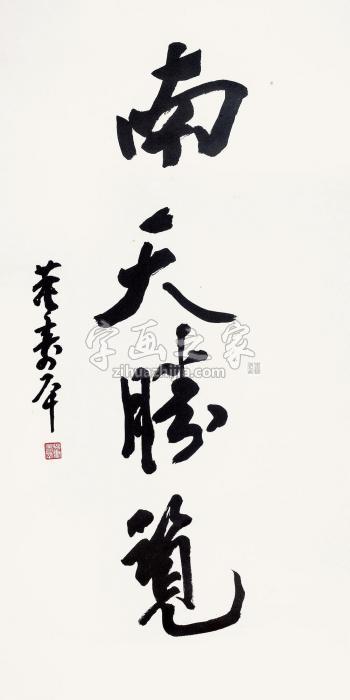 南天勝覽
董壽平
字画之家
zihuazhijia.com